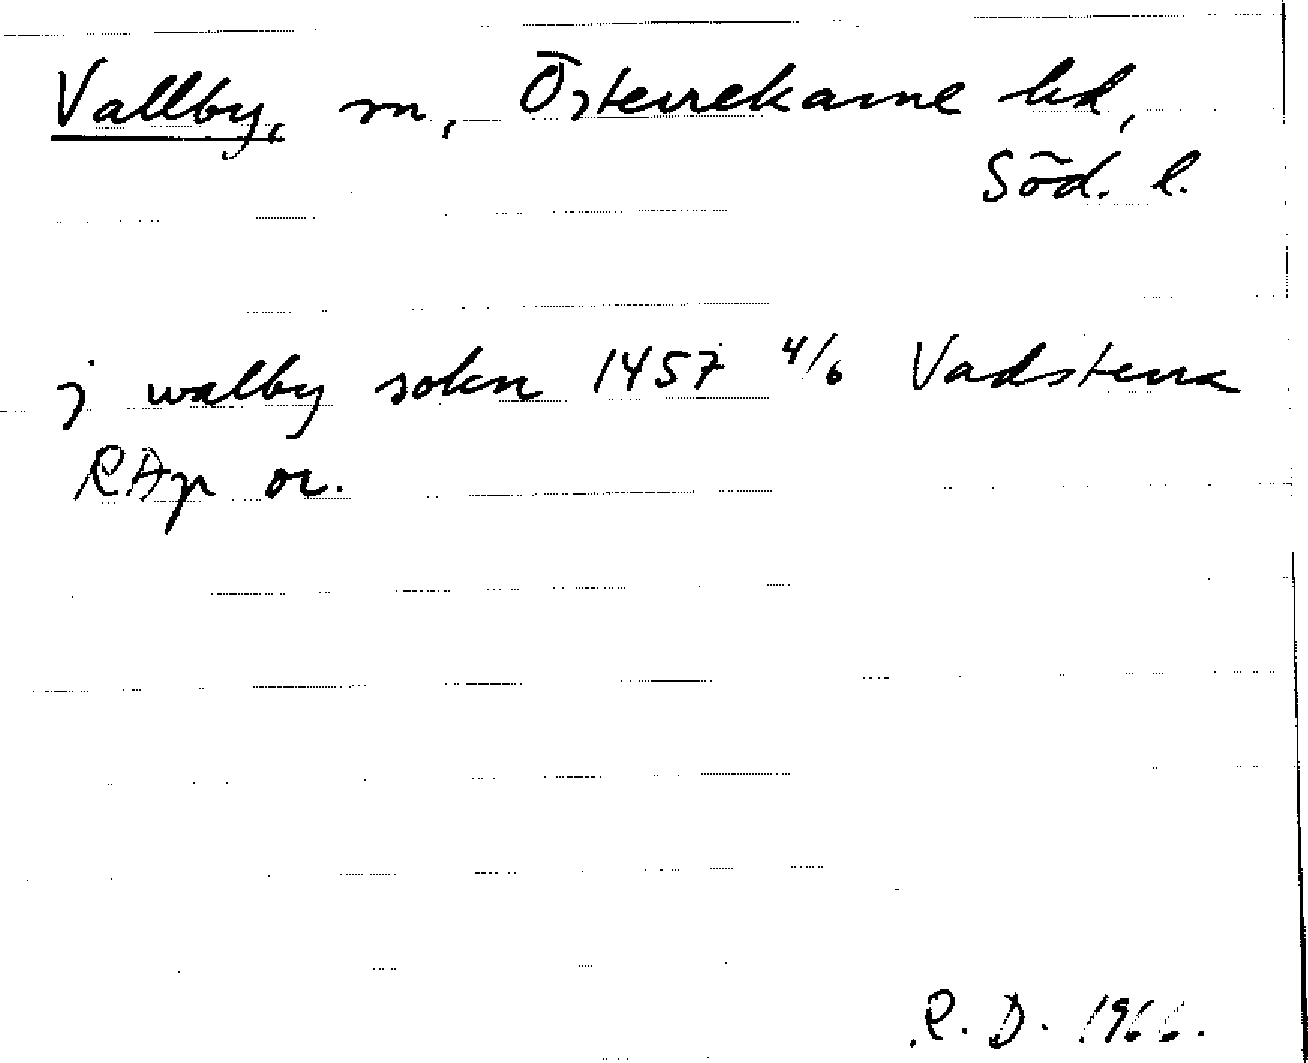 Vallby, sn, Österrekarne hd,
Söd. l.
j walby sokn 1457 4/6 Vadstena
RAp or.
R. D. 1966.